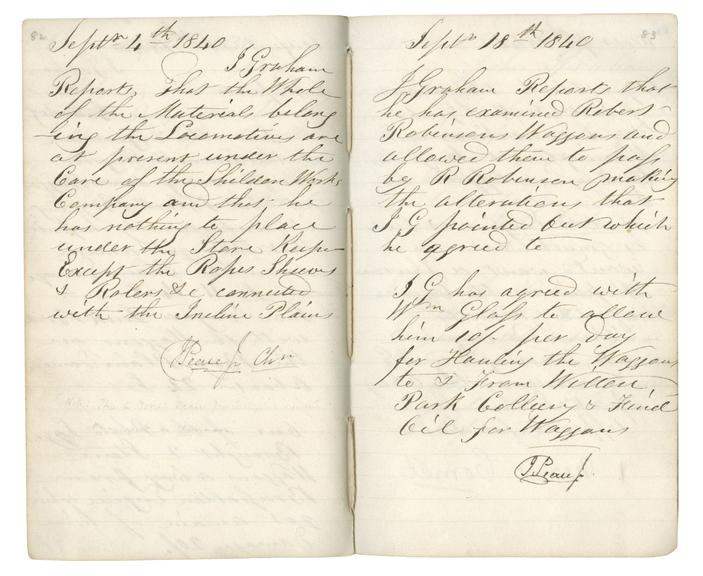 82
Septr 4th 1840
J Graham
Reports, That the Whole
of the Materials belong
ing the Locomotives are
at present under the
Care of the Shildon Works
Company and that he
has nothing to place
under the Store Keeper
Except the Ropes Sheeves
& Rolers &c connected
with the Incline Plains
J Pease Jr Chn
83
Septr 18th 1840
J Graham Reports that
he has examined Robert
Robinsons Waggons and
allowed them to pass
by R Robinson making
the alterations that
J G pointed out which
he agreed to
J G has agreed with
Wm Glass to allow
him 10/- per Day
for Hauling the Waggons
to & From Witton
Park Collery & Find
Oil for Waggons
J Pease Jr